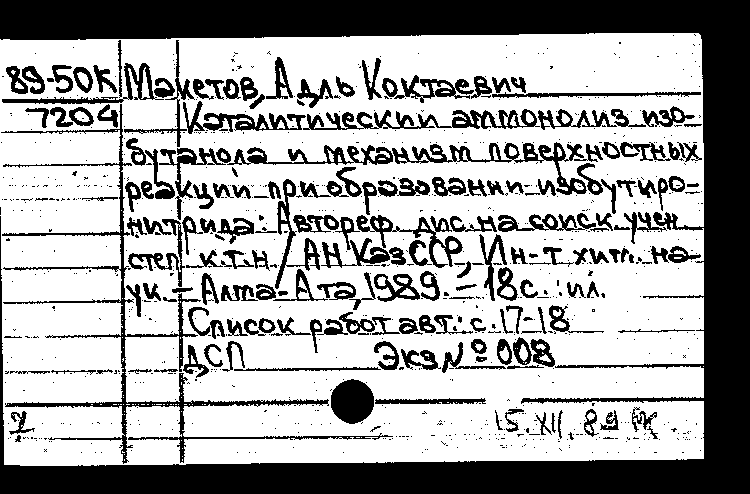 89-50К Макетов, Адль Коктаевич
7204 Каталитический аммонолиз изо-
бутанола и механизм поверхностных
реакций при образовании изобутиро-
нитрила: Автореф. дис. на соиск. учен.
степ. к.т.н. / АН КазССР, Ин-т хим. на-
ук. – Алма-Ата, 1989. – 18 с.: ил.
Список работ авт.: с. 17-18
ДСП Экз № 008
15. XII. 89